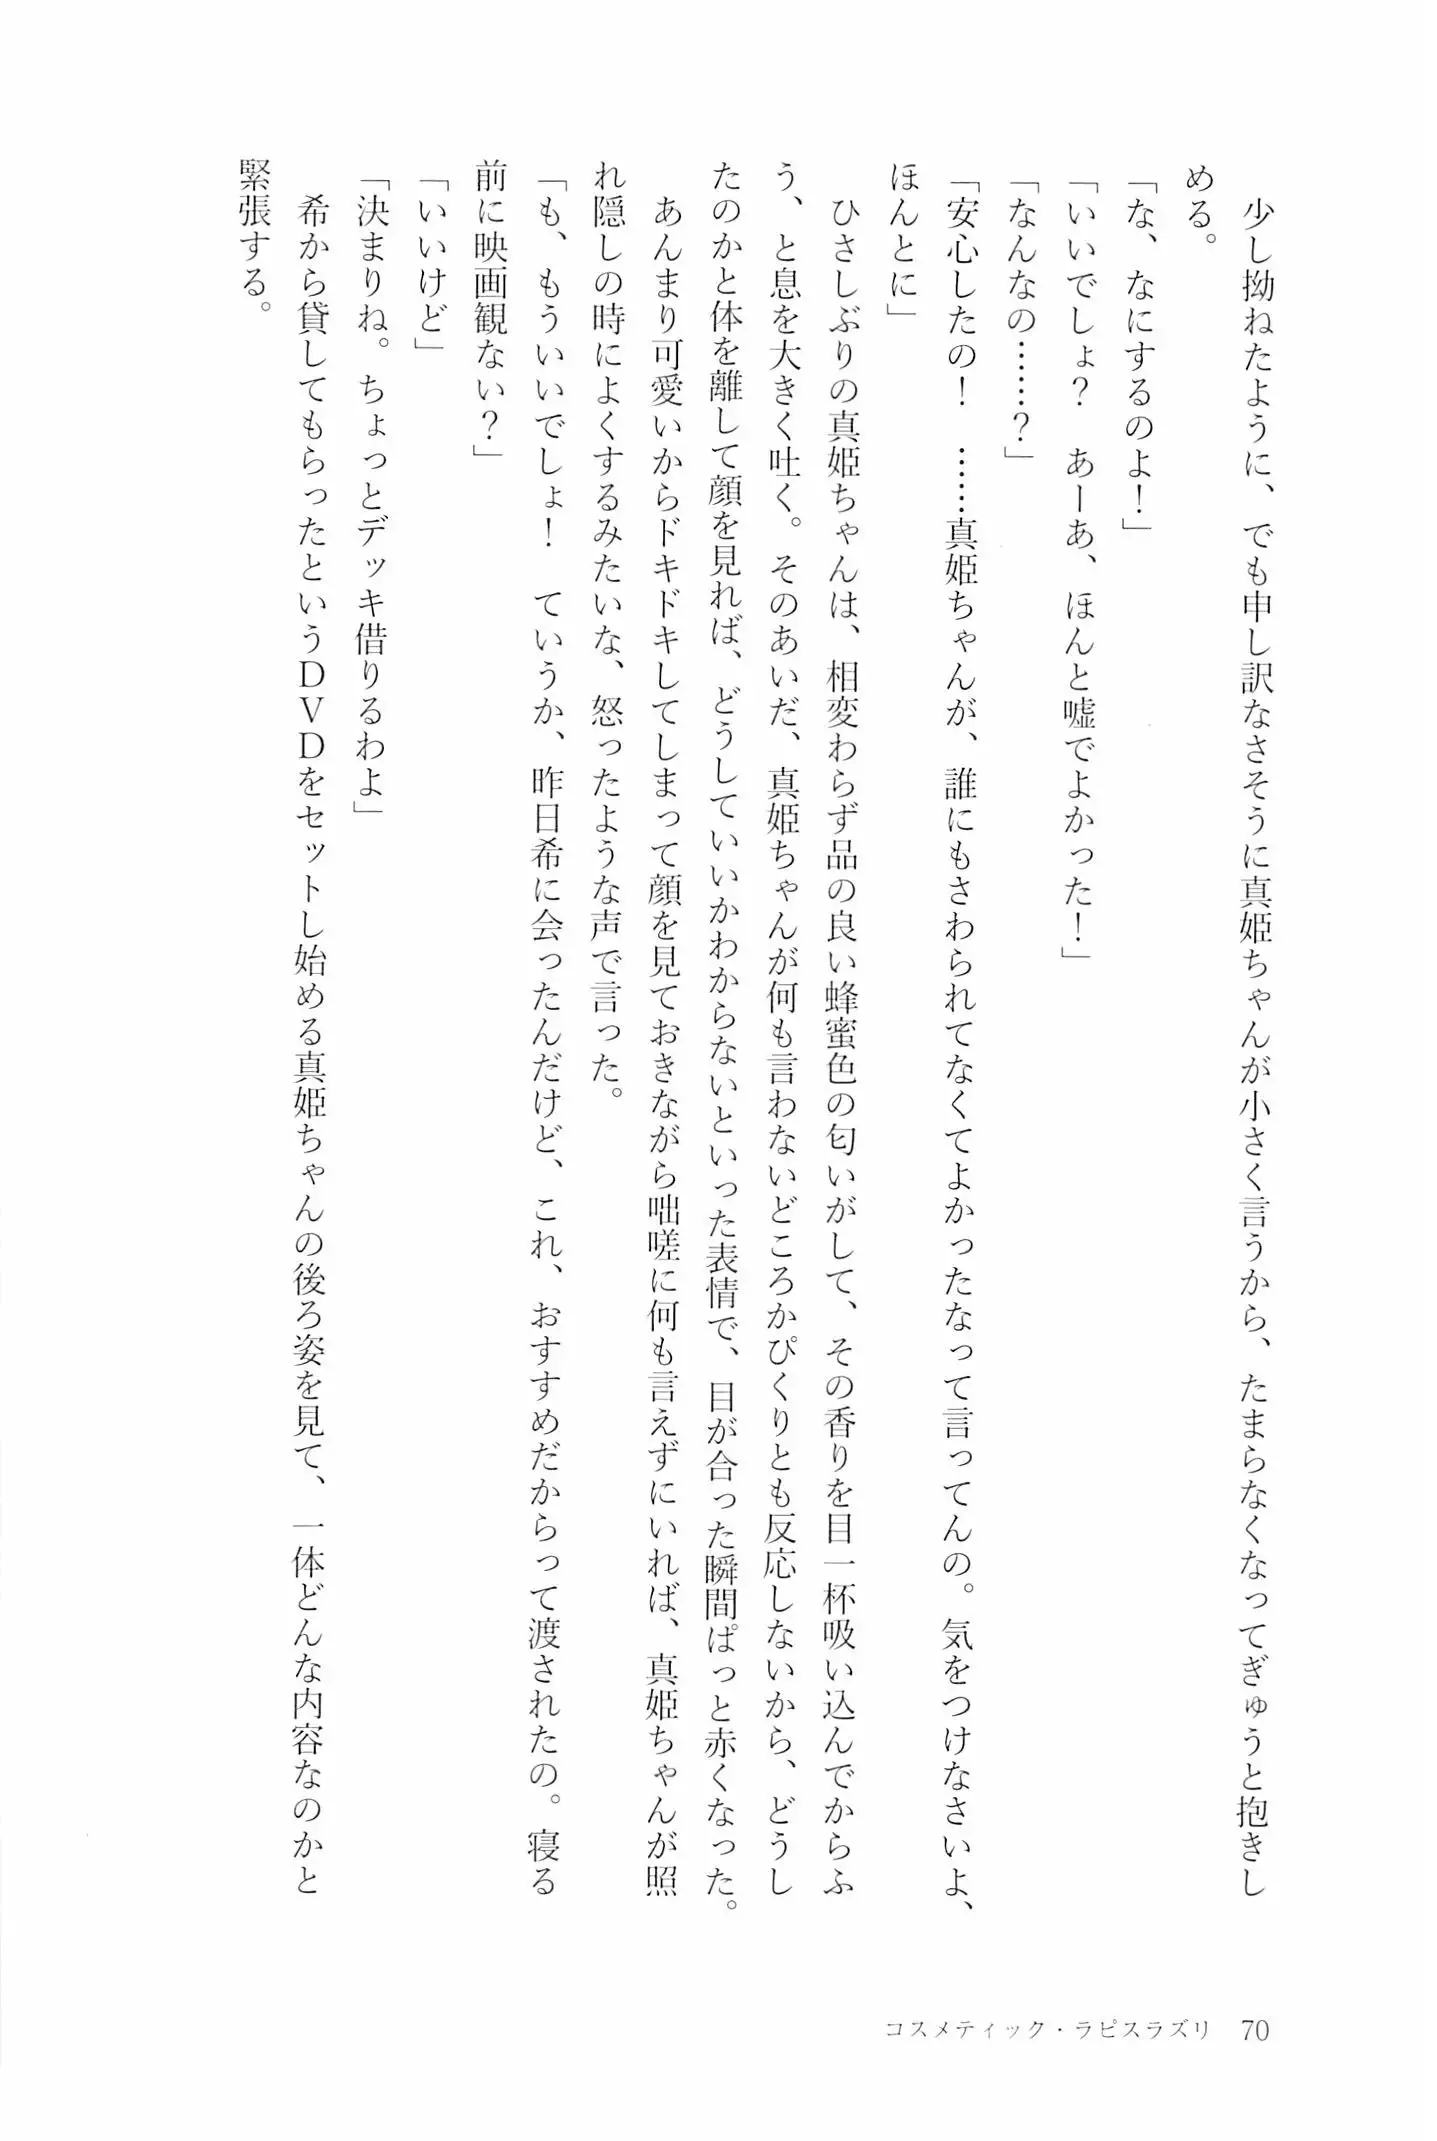 少し拗ねたように、でも申し訳なさそうに真姫ちゃんが小さく言うから、たまらなくなってぎゅうと抱きし
める。
「な、なにするのよ！」
「いいでしょ？　あーあ、ほんと嘘でよかった！」
「なんなの……？」
「安心したの！　……真姫ちゃんが、誰にもさわられてなくてよかったなって言ってんの。気をつけなさいよ、
ほんとに」
ひさしぶりの真姫ちゃんは、相変わらず品の良い蜂蜜色の匂いがして、その香りを目一杯吸い込んでからふ
う、と息を大きく吐く。そのあいだ、真姫ちゃんが何も言わないどころかぴくりとも反応しないから、どうし
たのかと体を離して顔を見れば、どうしていいかわからないといった表情で、目が合った瞬間ぱっと赤くなった。
あんまり可愛いからドキドキしてしまって顔を見ておきながら咄嗟に何も言えずにいれば、真姫ちゃんが照
れ隠しの時によくするみたいな、怒ったような声で言った。
「も、もういいでしょ！　ていうか、昨日希に会ったんだけど、これ、おすすめだからって渡されたの。寝る
前に映画観ない？」
「いいけど」
「決まりね。ちょっとデッキ借りるわよ」
希から貸してもらったというDVDをセットし始める真姫ちゃんの後ろ姿を見て、一体どんな内容なのかと
緊張する。
コスメティック・ラピスラズリ　70